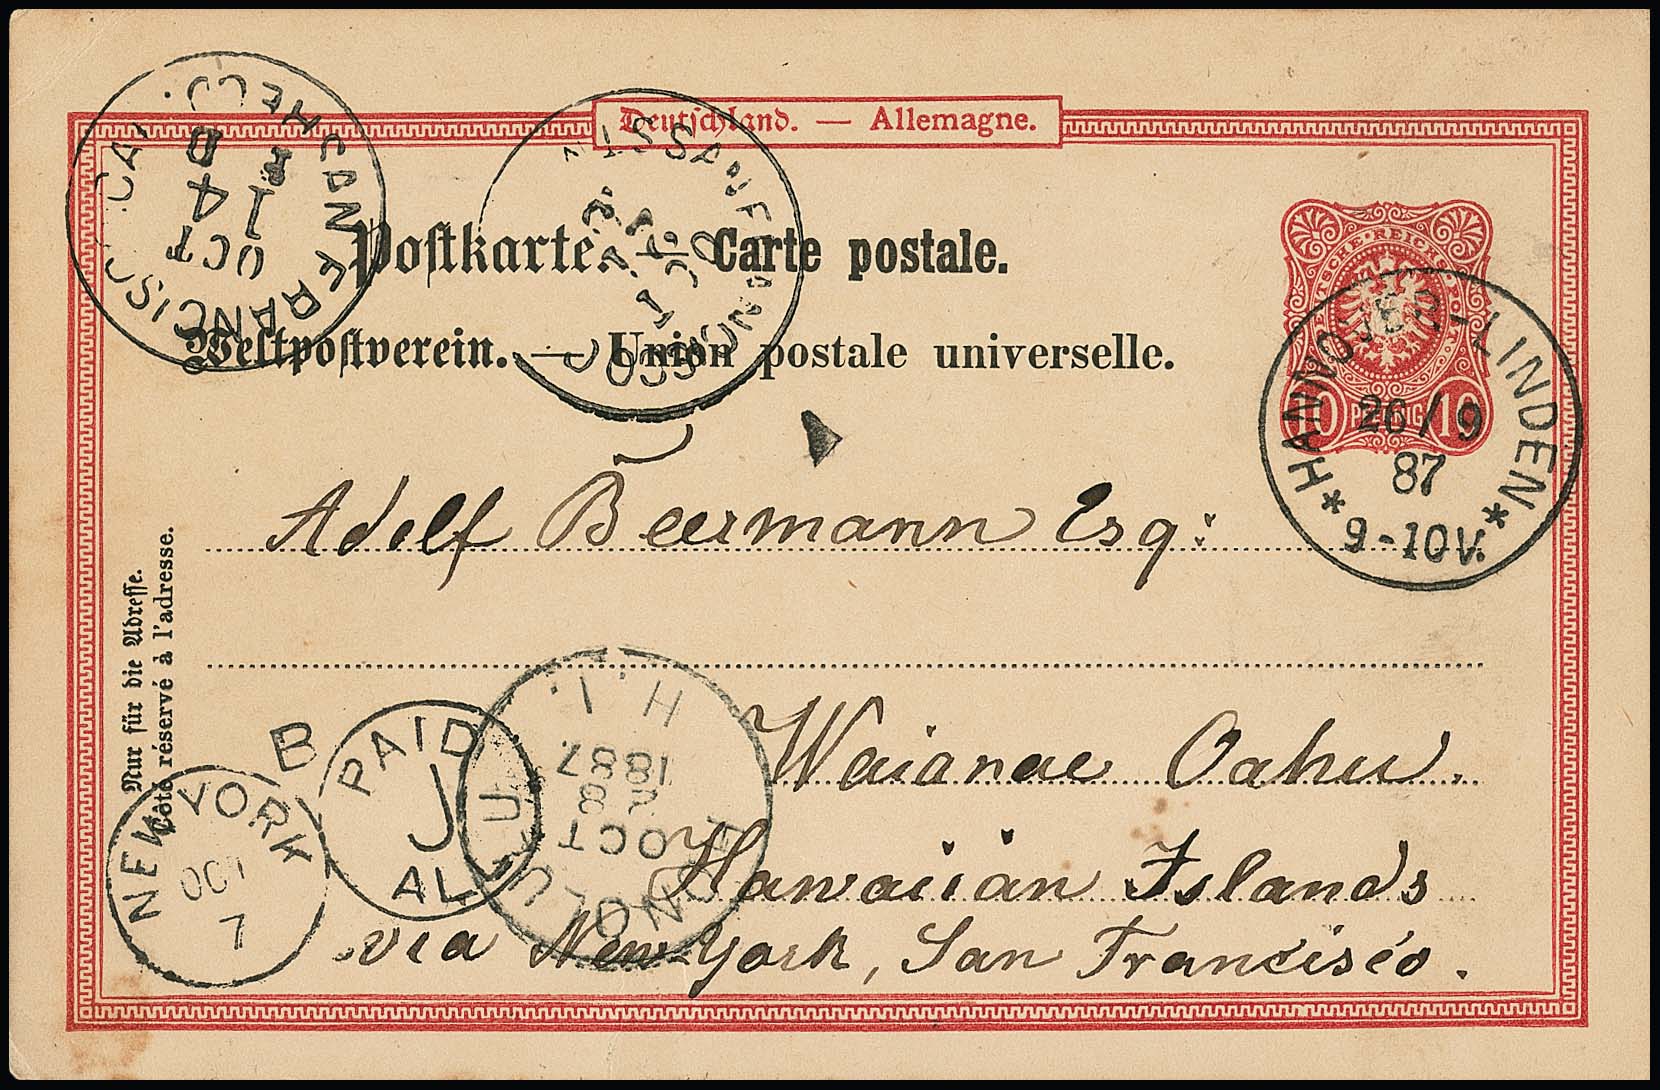 Deutschland. — Allemagne.
Postkarte. — Carte postale.
Weltpostverein. — Union postale universelle.
REICHS
10 PFENNIG 10
* HANNOVER-LINDEN *
26/9
87
9-10V.
SAN FRANCISCO, CAL.
OCT
14
Adolf Beermann Esq:
Nur für die Adresse.
Côté réservé à l'adresse.
Waianae Oahu.
Hawaiian Islands
via New York, San Francisco.
B
NEW YORK
OCT
7
PAID
J
ALL
HONOLULU
H. I.
OCT
28
1887.